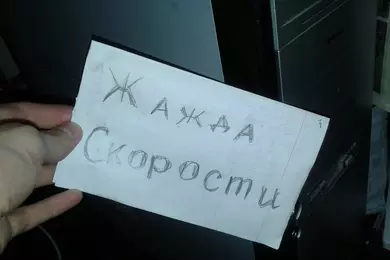 Жажда
Скорости